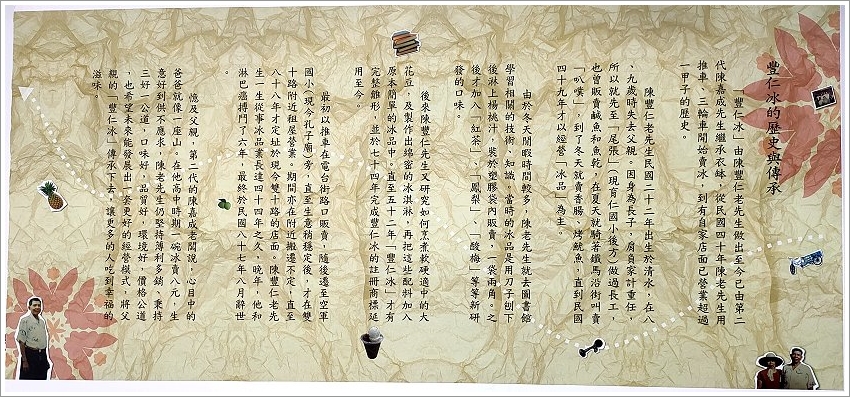 豐仁冰的歷史與傳承
「豐仁冰」由陳豐仁老先生做出至今已由第二
代陳嘉成先生繼承衣缽，從民國四十年陳老先生用
推車、三輪車開始賣冰，到有自家店面已營業超過
一甲子的歷史。
陳豐仁老先生民國二十二年出生於清水，在八
、九歲時失去父親。因身為長子，肩負家計重任，
所以就先至「尾張」(現育仁國小後方)做過長工，
也曾販賣鹹魚和魚乾，在夏天就騎著鐵馬沿街叫賣
「叭噗」，到了冬天就賣香腸、烤魷魚，直到民國
四十九年才以經營「冰品」為主。
由於冬天閒暇時間較多，陳老先生就去圖書館
學習相關的技術、知識。當時的冰品是用刀子刨下
後淋上楊桃汁，裝於塑膠袋內販賣，一袋兩角。之
後才加入「紅茶」、「鳳梨」、「酸梅」等等新研
發的口味。
後來陳豐仁先生又研究如何烹煮軟硬適中的大
花豆，及製作出綿蜜的冰淇淋，再把這些配料加入
原本簡單的冰品中。直至五十二年「豐仁冰」才有
完整雛形，並於七十四年完成豐仁冰的註冊商標延
用至今。
最初以推車在電台街路口販賣，隨後遷至空軍
國小(現今孔子廟)旁，直至生意稍穩定後，才在雙
十路附近租屋營業。期間亦在附近搬遷不定，直至
八十八年才定址於現今雙十路的店面。陳豐仁老先
生一生從事冰品業長達四十四年之久，晚年，他和
淋巴癌搏鬥了六年，最終於民國八十七年八月辭世
。
憶及父親，第二代的陳嘉成老闆說，心目中的
爸爸就像一座山。在他高中時期一碗冰賣八元，生
意好到供不應求，陳老先生仍堅持薄利多銷，秉持
三好一公道，口味好，品質好，環境好，價格公道
，也希望未來能發展出一套更好的經營模式，將父
親的「豐仁冰」傳承下去，讓更多的人吃到幸福的
滋味。